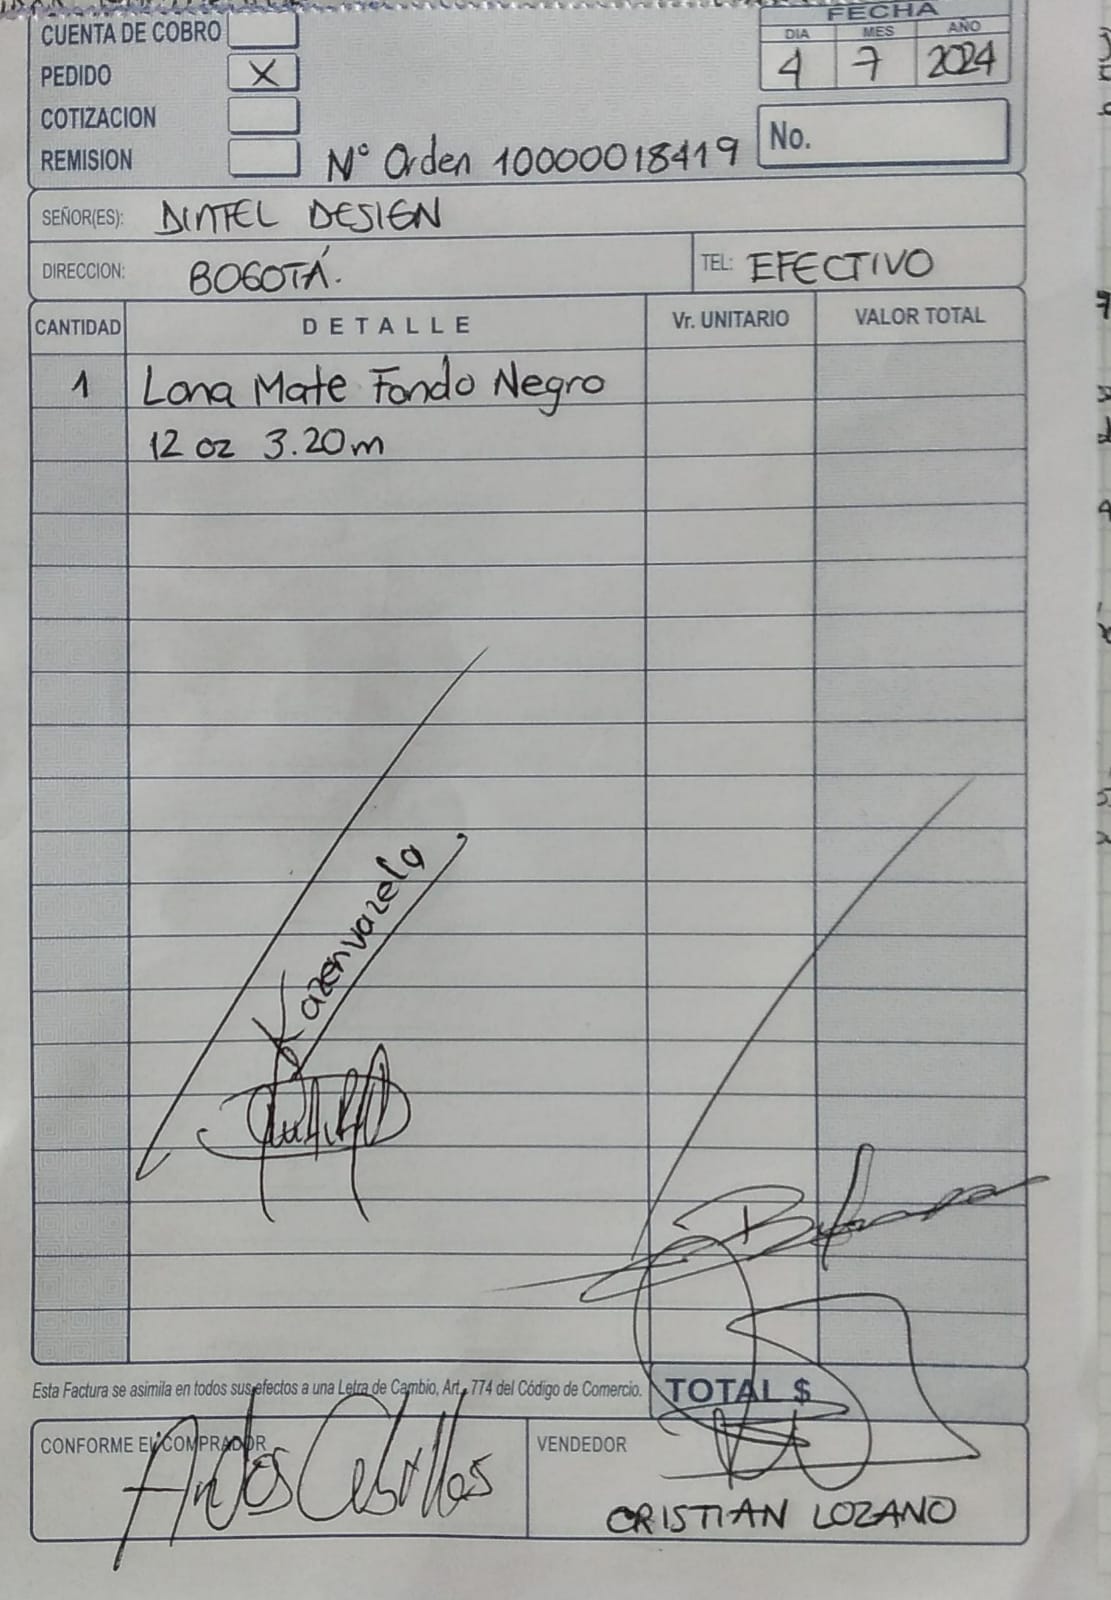 CUENTA DE COBRO
PEDIDO X
COTIZACION
REMISION
N° Orden 10000018419
FECHA
DIA MES AÑO
4 7 2024
No.
SEÑOR(ES): DINTEL DESIGN
DIRECCION: BOGOTÁ.
TEL: EFECTIVO
CANTIDAD DETALLE Vr. UNITARIO VALOR TOTAL
1 Lona Mate Fondo Negro
12 oz 3.20m
Karenvarela
Esta Factura se asimila en todos sus efectos a una Letra de Cambio, Art. 774 del Código de Comercio.
TOTAL $
CONFORME EL COMPRADOR
VENDEDOR
CRISTIAN LOZANO